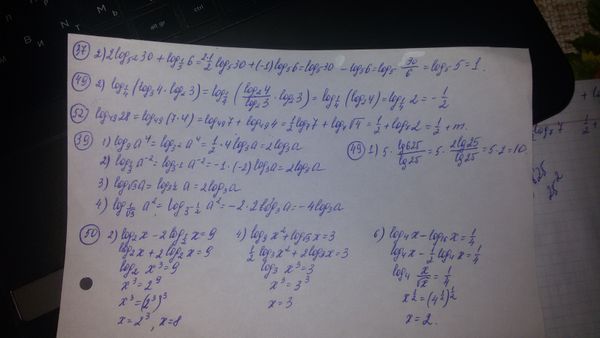 37 2) 2log₅² 30 + log_{1/5} 6 = 2·1/2 log₅ 30 + (-1) log₅ 6 = log₅ 30 - log₅ 6 = log₅ 30/6 = log₅ 5 = 1.
49 2) log_{1/4} (log₃ 4 · log₂ 3) = log_{1/4} (log₂ 4/log₂ 3 · log₂ 3) = log_{1/4} (log₂ 4) = log_{1/4} 2 = -1/2
52 log₄₉ 28 = log₄₉ (7·4) = log₄₉ 7 + log₄₉ 4 = 1/2 log₇ 7 + log₇ √4 = 1/2 + log₇ 2 = 1/2 + m.
39 1) log₉ a⁴ = log₃² a⁴ = 1/2 · 4 log₃ a = 2log₃ a
2) log_{1/3} a⁻² = log₃⁻¹ a⁻² = -1·(-2) log₃ a = 2log₃ a
3) log_{√3} a = log_{3^{1/2}} a = 2log₃ a
4) log_{1/√3} a² = log_{3^{-1/2}} a² = -2·2log₃ a = -4log₃ a
49 1) 5· lg625/lg25 = 5· 2lg25/lg25 = 5·2 = 10.
50 2) log₂ x - 2log_{1/2} x = 9
log₂ x + 2log₂ x = 9
log₂ x³ = 9
x³ = 2⁹
x³ = (2³)³
x = 2³, x = 8
4) log₉ x² + log_{√3} x = 3
1/2 log₃ x² + 2log₃ x = 3
log₃ x³ = 3
x³ = 3³
x = 3
6) log₄ x - log₁₆ x = 1/4
log₄ x - 1/2 log₄ x = 1/4
log₄ x/√x = 1/4
x^{1/2} = (4^{1/2})^{1/2}
x = 2.